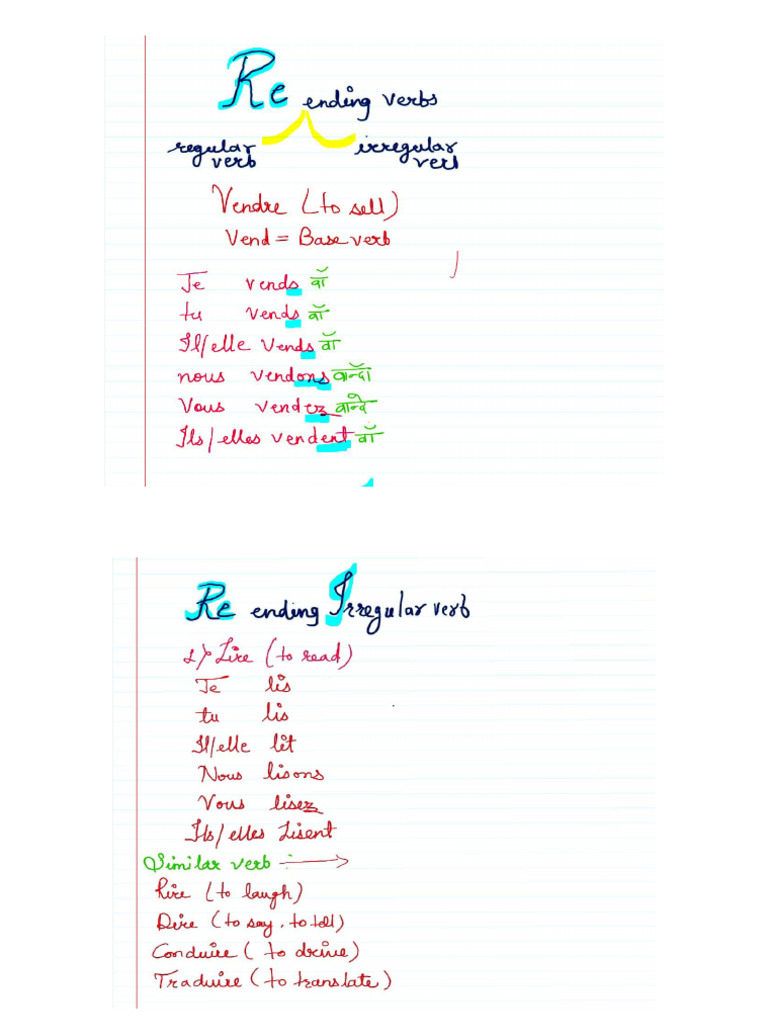 Re ending verbs
regular verb irregular verb
Vendre (to sell)
Vend = Base verb
Je vends वाँ
tu vends वाँ
Il/elle vends वाँ
nous vendons वान्दाँ
Vous vendez वान्दे
Ils/elles vendent वाँ
Re ending Irregular verb
1) Lire (to read)
Je lis
tu lis
Il/elle lit
Nous lisons
Vous lisez
Ils/elles Lisent
Similar verb : →
Rire (to laugh)
Dire (to say, to tell)
Conduire (to drive)
Traduire (to translate)